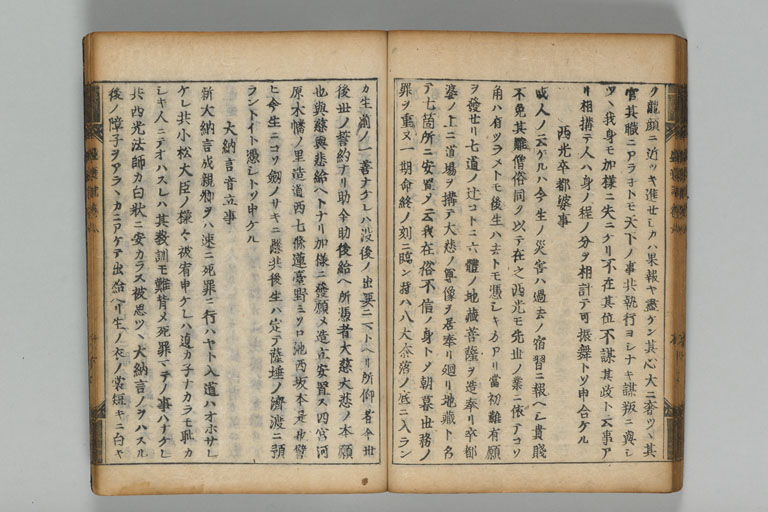 ヲ龍顔ニ近ツキ進セシカハ果報ヤ盡ケン其心大ニ奢ツヽ其
官其職ニアラネトモ天下ノ事共執行ヨシナキ謀叛ニ與シ
ツヽ我身モ加様ニ失ニケリ不在其位不謀其政ト云事ア
リ相搆テ人ハ身ノ程ノ分ヲ相計テ可振舞トソ申合ケル
西光卒都婆事
或人ノ云ケルハ今生ノ災害ハ過去ノ宿習ニ報ヘシ貴賤
不免其難僧俗同ヲ以テ在之西光モ先世ノ業ニ依テコソ
角ハ有ツラメトモ後生ハ去トモ憑シキ方アリ當初難有願
ヲ發セリ七道ノ辻コトニ六體ノ地蔵菩薩ヲ造奉リ卒都
婆ノ上ニ道場ヲ搆テ大悲ノ尊像ヲ居奉リ廻リ地蔵ト名
テ七箇所ニ安置ノ云我在俗不信ノ身トソ朝暮世務ノ
罪ヲ重又一期命終ノ刻ニ臨ン時ハ八大奈落ノ底ニ入ラン
カ生前ノ一善ナケレハ没後ノ出要ニマトヘリ所仰者今世
後世ノ誓約ナリ助今助後給ヘ所憑者大慈大悲ノ本願
也與慈與悲給ヘトナリ加様ニ發願メ造立安置ス四宮河
原木幡ノ里造道西七條蓮臺野ミソロ池西坂本是也譬
ヒ今生ニコソ剱ノサキニ懸共後生ハ定テ薩埵ノ濟渡ニ預
ラントイト憑シトソ申ケル
大納言音立事
新大納言成親卿ヲハ速ニ死罪ニ行ハヤト入道ハオホサレ
ケレ共小松大臣ノ様々被宥申ケレハ道カ子ナカラモ耻カ
シキ人ニテオハスレハ其教訓モ難背メ死罪マテノ事ハナケレ
共西光法師カ白狀ニ安カラス被思ツヽ大納言ノヲハスル
後ノ障子ヲアラヽカニアケテ出給ヘリ生ノ衣ノ裳短キニ白キ